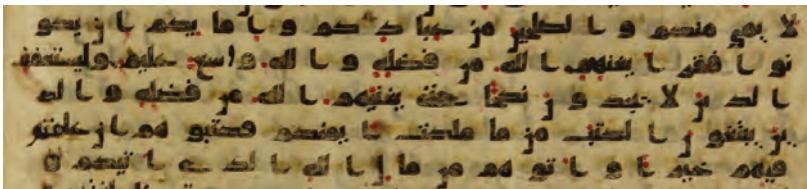 لايمى منكم والصلحين من عبادكم وامائكم ان يكو
نوا فقرا يغنهم الله من فضله والله وسع عليم وليستعفف
الذين لا يجدون نكحا حتى يغنيهم الله من فضله والذ
ين يبتغون الكتب مما ملكت ايمنكم فكتبوهم ان علمتم
فيهم خيرا واتوهم من مال الله الذي اتيكم